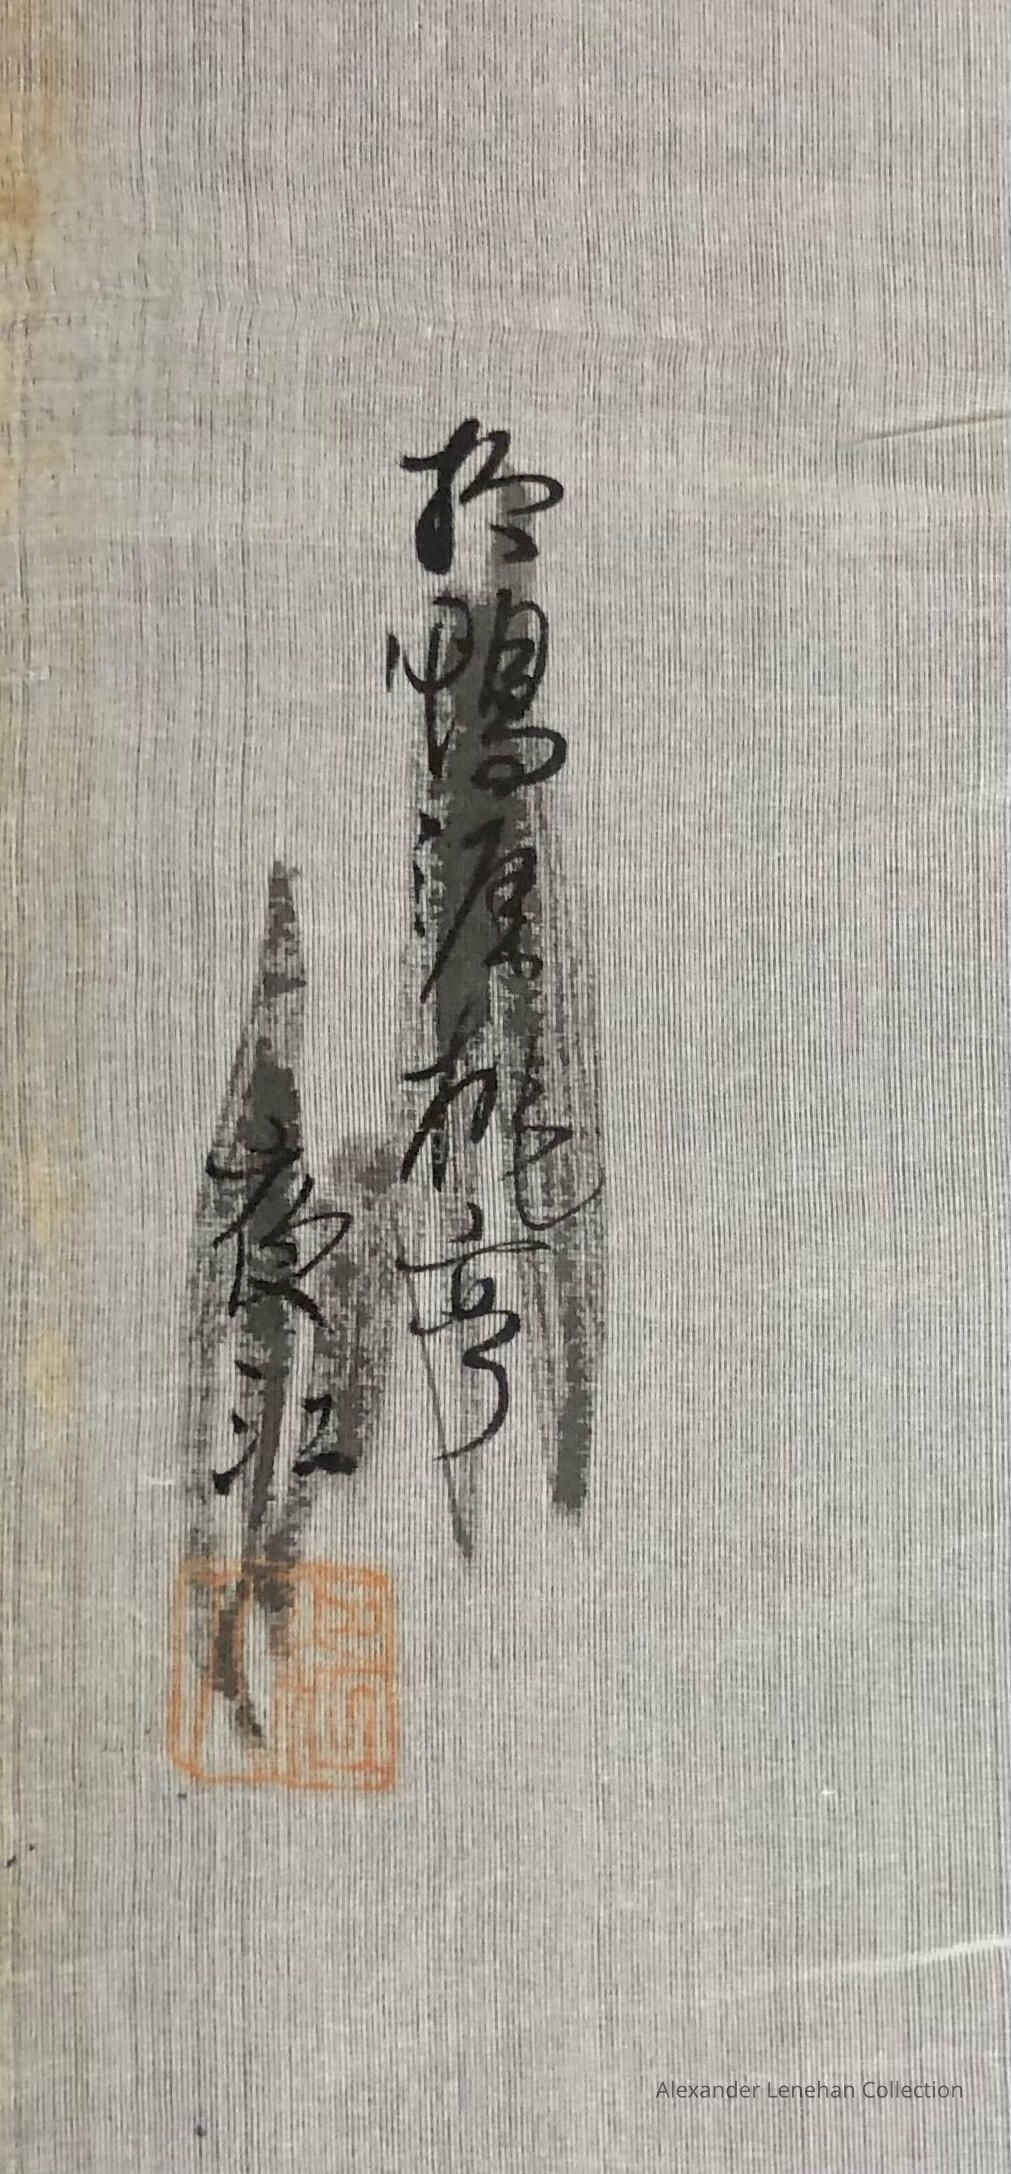 於鴨涯桃亭
夜江
Alexander Lenehan Collection